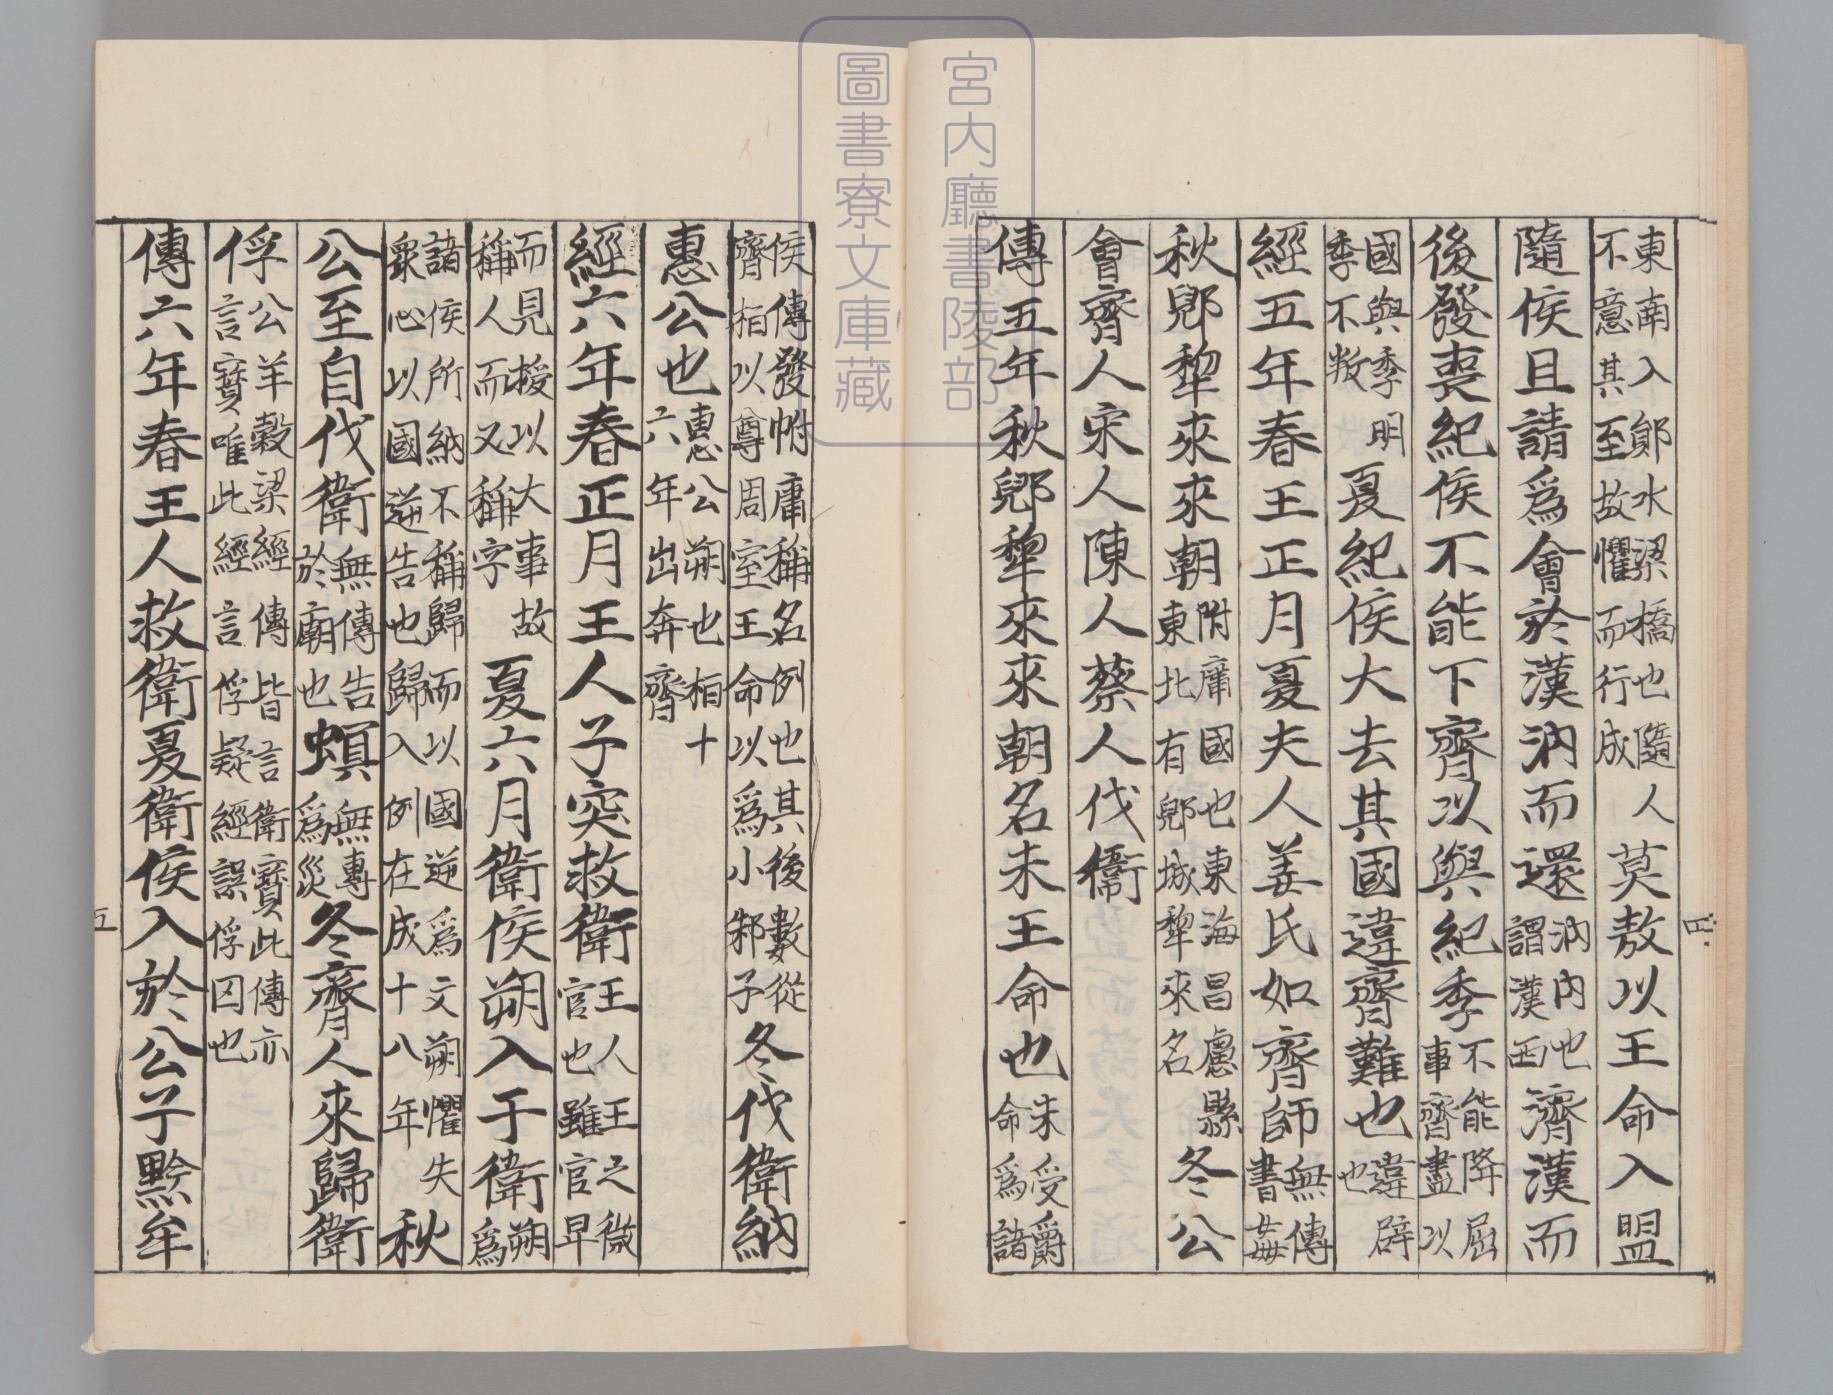 東南入鄖水梁橋也隨人
不意其至故懼而行成
莫敖以王命入盟
隨侯且請爲會於漢汭而還
汭內也
謂漢西
濟漢而
後發喪紀侯不能下齊以與紀季
不能降屈
事齊盡以
國與季明
季不叛
夏紀侯大去其國違齊難也
違辟
也
經五年春王正月夏夫人姜氏如齊師
無傳
書姦
秋郳犂來來朝
附庸國也東海昌慮縣
東北有郳城犂來名
冬公
會齊人宋人陳人蔡人伐衛
傳五年秋郳犂來來朝名未王命也
未受爵
命爲諸
四
侯傳發附庸稱名例也其後數從
齊桓以尊周室王命以爲小邾子
冬伐衛納
惠公也
惠公朔也桓十
六年出奔齊
經六年春正月王人子突救衛
王人王之微
官也雖官卑
而見授以大事故
稱人而又稱字
夏六月衛侯朔入于衛
朔
爲
諸侯所納不稱歸而以國逆爲文朔懼失
眾心以國逆告也歸入例在成十八年
秋
公至自伐衛
無傳告
於廟也
螟
無傳
爲災
冬齊人來歸衛
俘
公羊穀梁經傳皆言衛寶此傳亦
言寶唯此經言俘疑經誤俘囚也
傳六年春王人救衛夏衛侯入於公子黔牟
五
宮內廳書陵部
圖書寮文庫藏